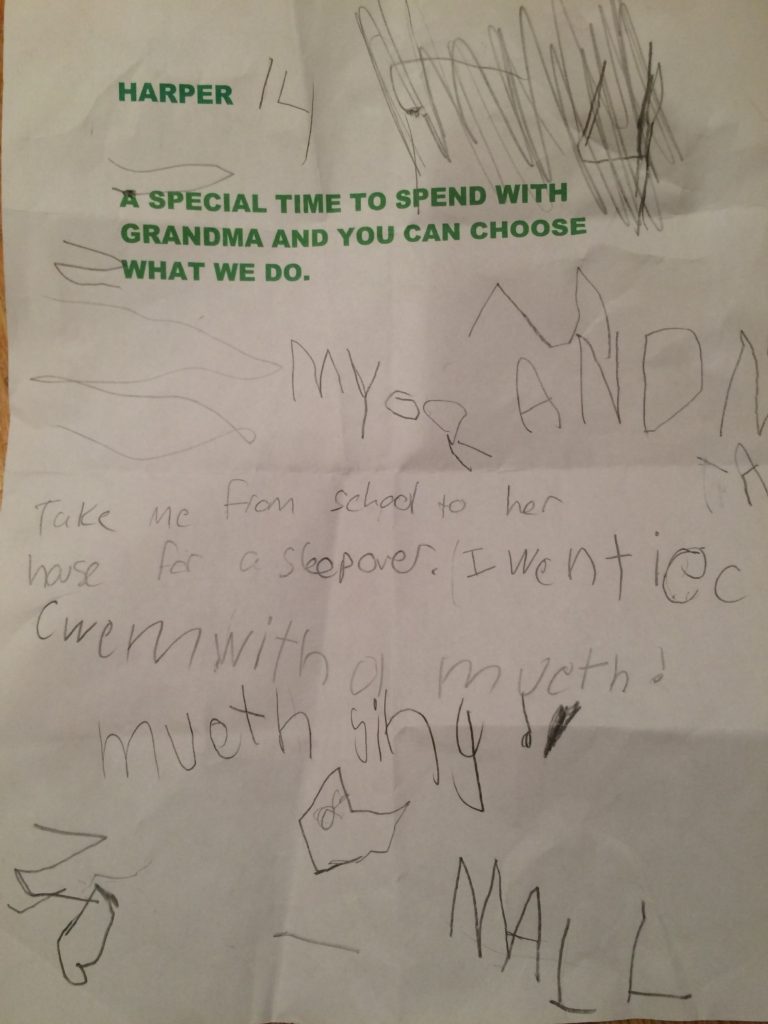 HARPER 14 4
A SPECIAL TIME TO SPEND WITH
GRANDMA AND YOU CAN CHOOSE
WHAT WE DO.
MY GRANDM
A
Take me from school to her
house for a sleepover. I went iec
cwem with a mueth!
mueth sing!
MALL